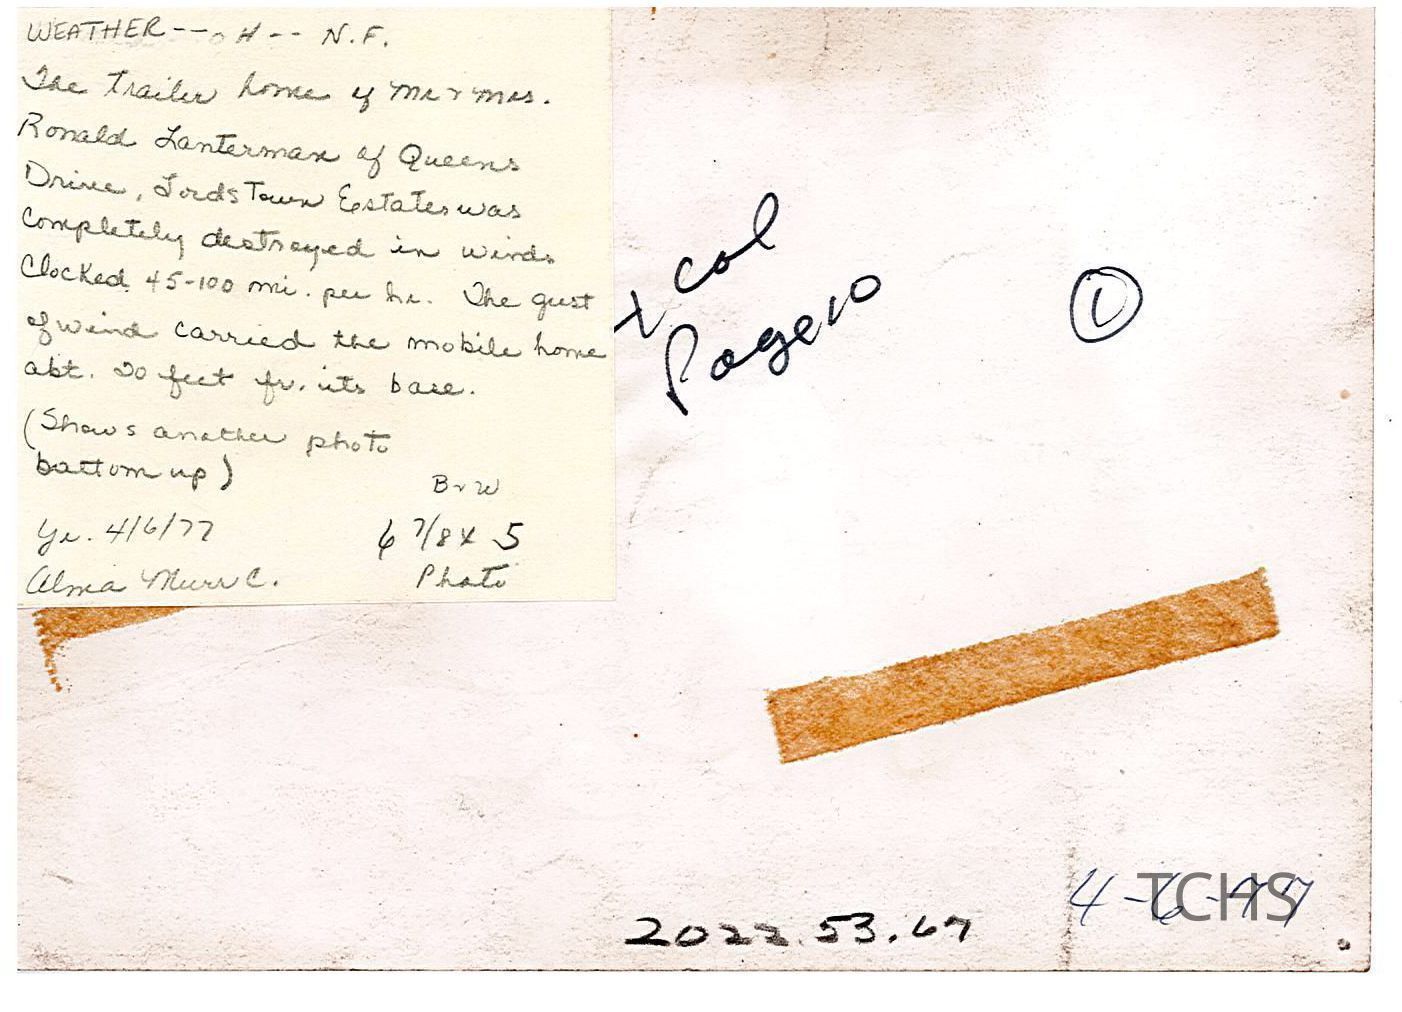 WEATHER -- OH -- N.F.
The trailer home of Mr & Mrs.
Ronald Lanterman of Queens
Drive, Lordstown Estates was
completely destroyed in winds
clocked 45-100 mi. per hr. The gust
of wind carried the mobile home
abt. 20 feet fr. its base.
(Shows another photo
bottom up)
B & W
Yr. 4/6/77
6 7/8 x 5
Alma Murr C.
Photo
4 col
Page 10
1
4-6-77
TCHS
2022.53.67